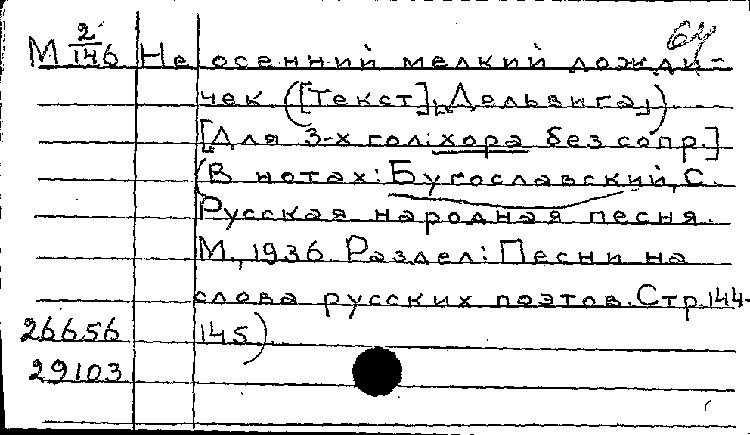 М 2/146 Не осенний мелкий дожди-
чек ([Текст] „Дельвига„)
[Для 3-х гол. хора без сопр.]
(В нотах: Бугославский, С.
Русская народная песня.
М., 1936. Раздел: Песни на
слова русских поэтов. Стр. 144-
26656 145).
29103